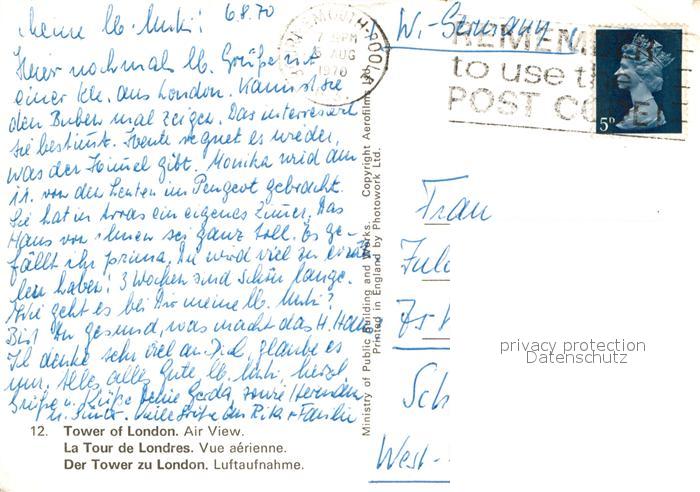 Meine lb. Muki! 6.8.70
Hier nochmals lb. Grüße mit
einer Kte. aus London. Kannst sie
den Buben mal zeigen. Das interessiert
sie bestimmt. Heute regnet es wieder,
was der Himmel gibt. Monika wird am
11. von den Leuten im Peugeot gebracht.
Sie hat in Arras ein eigenes Zimmer. Das
Haus von Ihnen sei ganz toll. Es ge-
fällt ihr prima. Du wird viel zu erzäh-
len haben! 3 Wochen sind schön lange.
Wie geht es bei Dir meine lb. Muki?
Bist Du gesund, was macht das H. Haus
Ich denke sehr viel an Dich, glaube es
mir. Alles alles Gute lb. Muki, herzl.
Grüße u. Küße Deine Gerda, sowie Hermann
u. Günter. Viele Grüße an Rita + Familie
12. Tower of London. Air View.
La Tour de Londres. Vue aérienne.
Der Tower zu London. Luftaufnahme.
Ministry of Public Building and Works. Copyright Aerofilms Ltd.
Printed in England by Photowork Ltd.
PORTSMOUTH
7 PM
6 AUG
1970
REMEMBER
to use the
POST CODE
5ᴰ
W.-Germany
Frau
Sch
West-
privacy protection
Datenschutz